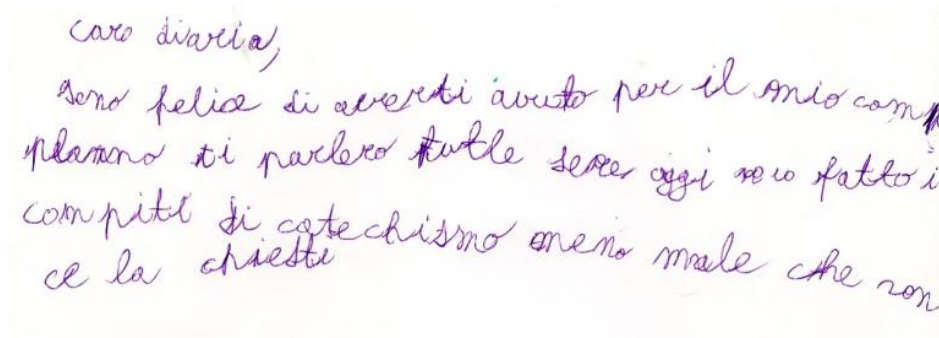 caro diaria,
sono felice di averti avuto per il mio comp
planno ti parlero tutle sere oggi fatto i
compiti di catechismo meno male che non
ce la chieste